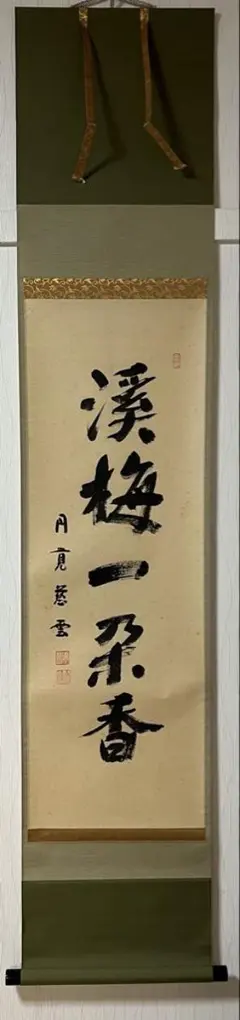 渓梅一朶香
円覚慈雲